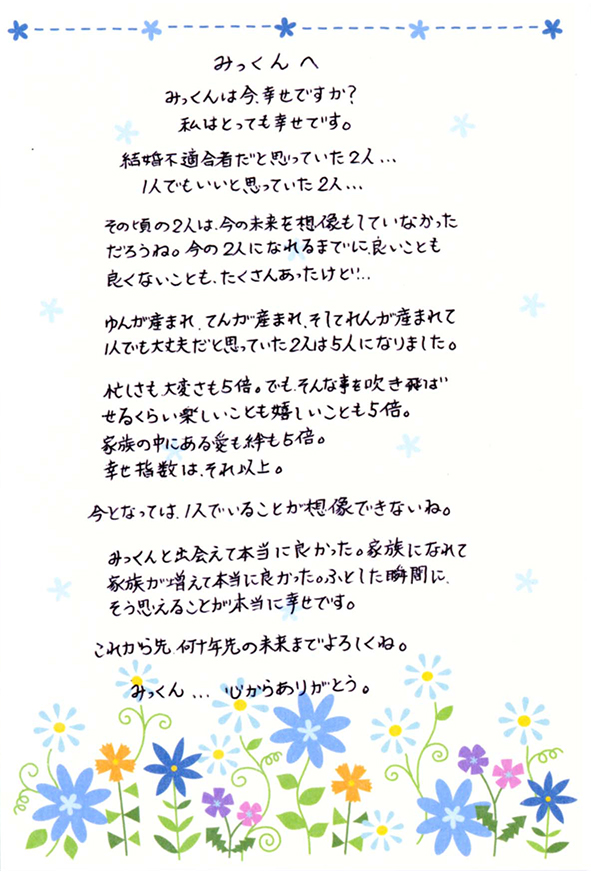 みっくんへ
みっくんは今、幸せですか?
私はとっても幸せです。
結婚不適合者だと思っていた2人…
1人でもいいと思っていた2人…
その頃の2人は、今の未来を想像もしていなかった
だろうね。今の2人になれるまでに、良いことも
良くないことも、たくさんあったけど…
ゆんが産まれ、てんが産まれ、そしてれんが産まれて
1人でも大丈夫だと思っていた2人は5人になりました。
忙しさも、大変さも5倍。でも、そんな事を吹き飛ば
せるくらい楽しいことも嬉しいことも5倍。
家族の中にある愛も絆も5倍。
幸せ指数は、それ以上。
今となっては、1人でいることが想像できないね。
みっくんと出会えて本当に良かった。家族になれて
家族が増えて本当に良かった。ふとした瞬間に、
そう思えることが本当に幸せです。
これから先、何十年先の未来までよろしくね。
みっくん…心からありがとう。